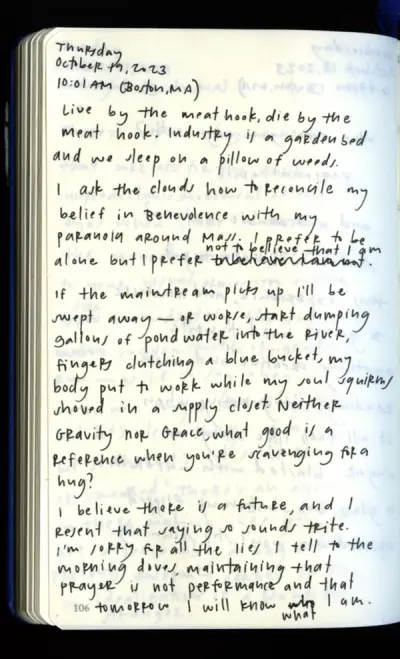 Thursday
October 19, 2023
10:01 AM (Boston, MA)
Live by the meat hook, die by the
meat hook. Industry is a garden bed
and we sleep on a pillow of weeds.
I ask the clouds how to reconcile my
belief in Benevolence with my
paranoia around Mass. I prefer to be
not to believe that I am
alone but I prefer
If the mainstream picks up I'll be
swept away — or worse, start dumping
gallons of pond water into the River,
fingers clutching a blue bucket, my
body put to work while my soul squirms
shoved in a supply closet. Neither
Gravity nor Grace, what good is a
reference when you're scavenging for a
hug?
I believe there is a future, and I
resent that saying so sounds trite.
I'm sorry for all the lies I tell to the
morning doves, maintaining that
prayer is not performance and that
106 tomorrow I will know who I am.
what